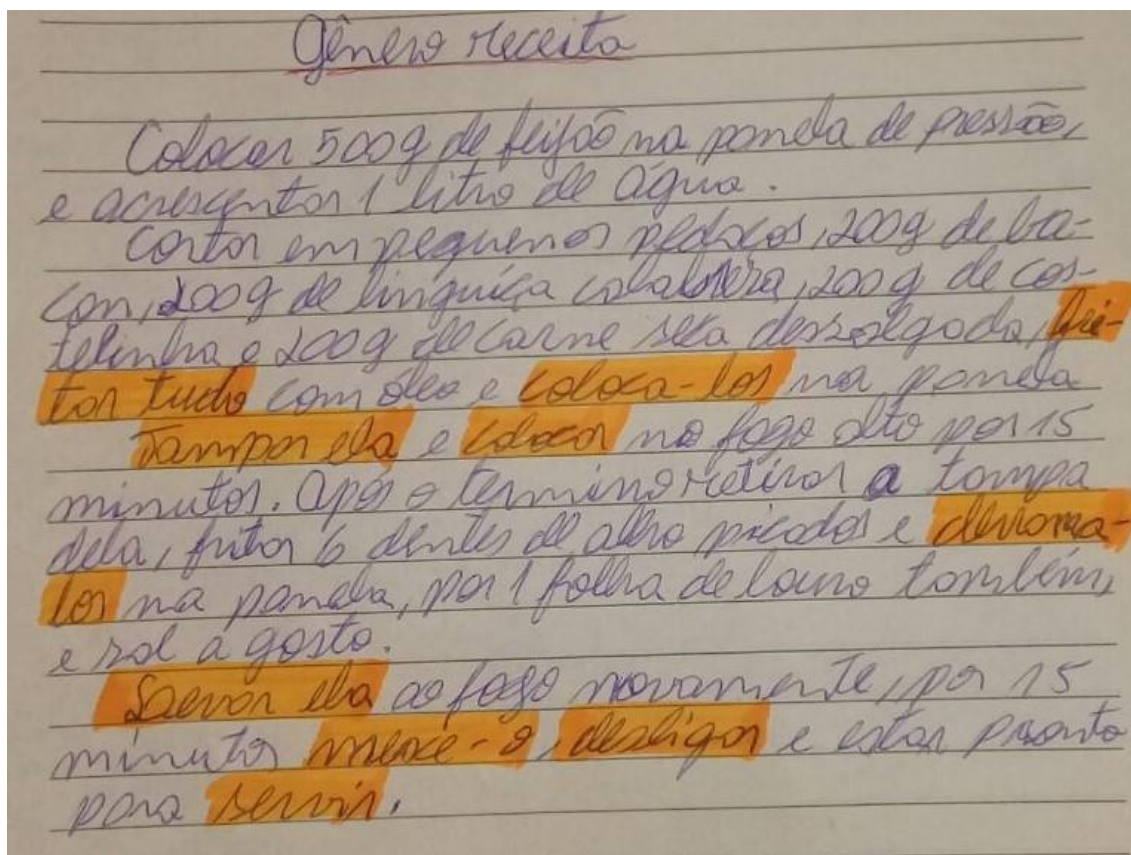 Gênero receita
Colocar 500g de feijão na panela de pressão,
e acrescentar 1 litro de água.
Cortar em pequenos pedaços, 200g de ba-
con, 200g de linguiça calabresa, 200g de cos-
telinha e 200g de carne seca dessalgada, fri-
tar tudo com óleo e coloca-los na panela
Tampar ela e colocar no fogo alto por 15
minutos. Após o termino retirar a tampa
dela, fritar 6 dentes de alho picados e derrama-
los na panela, por 1 folha de louro também,
e sal a gosto.
Levar ela ao fogo novamente, por 15
minutos mexe-o, desligar e estar pronto
para servir.